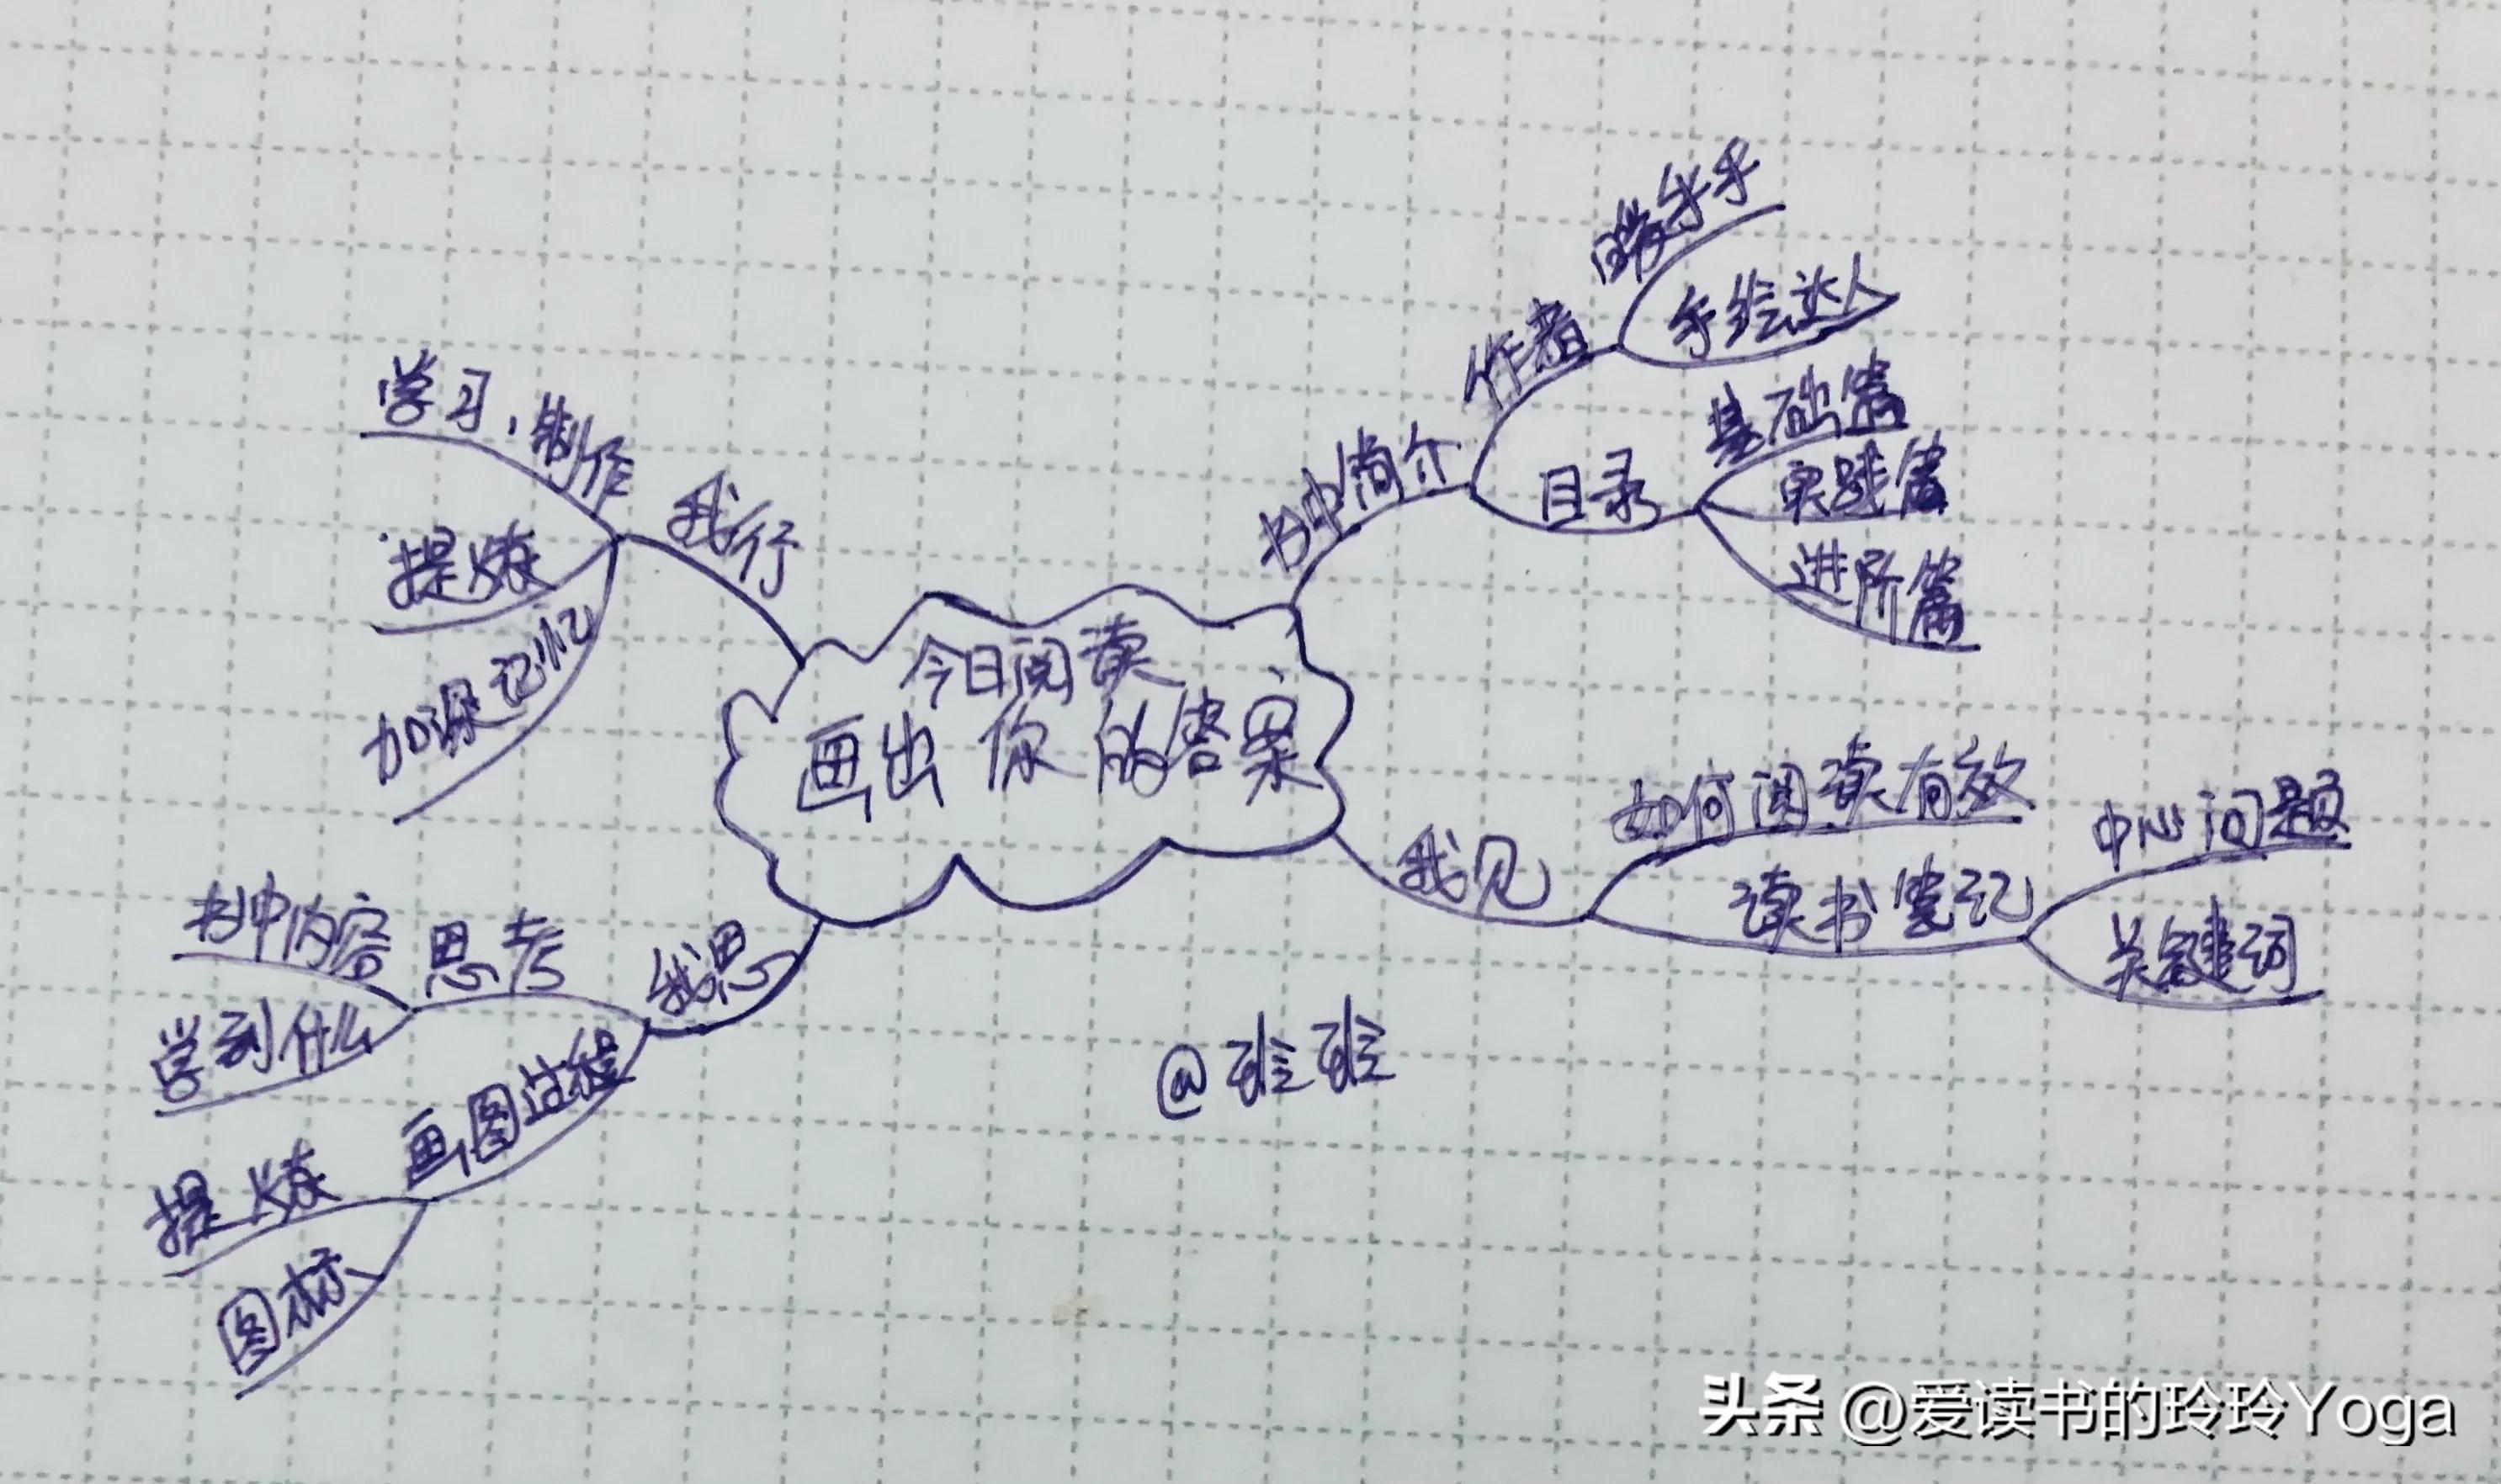 今日阅读
画出你的答案
书中简介
作者
手手
手绘达人
目录
基础篇
实践篇
进阶篇
我见
如何阅读有效
读书笔记
中心问题
关键词
我思
思考
书中内容
学到什么
画图过程
提炼
图标
我行
学习,制作
提炼
加深记忆
@玲玲
头条 @爱读书的玲玲Yoga